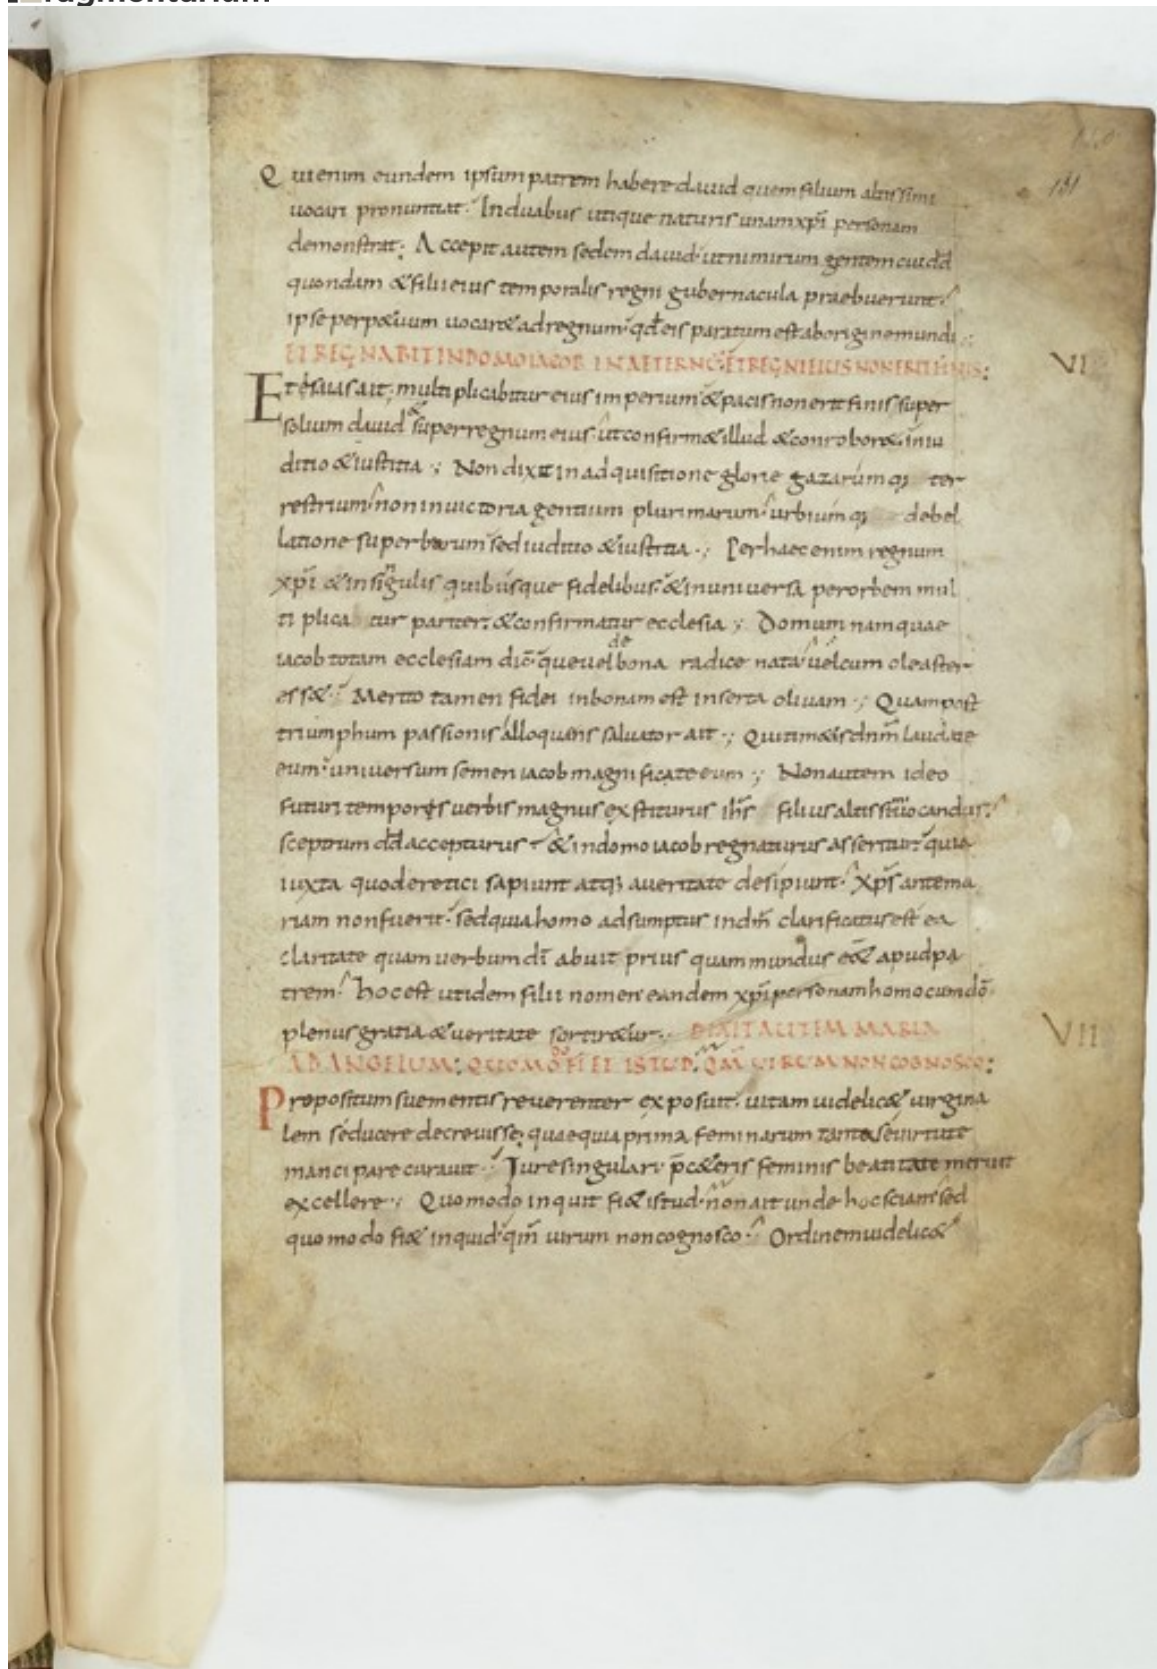 fragmentarium
131
Qui enim eundem ipsum patrem habere dauid quem filium altissimi
uocari pronuntiat. In duabus utique naturis unam xp̄i personam
demonstrat; Accepit autem sedem dauid. ut nimirum gentem cui dd̄
quondam & filii eius temporalis regni gubernacula praebuerunt.
ipse perp&uum uocar& ad regnum. qđ eis paratum est ab origine mundi.;
ET REGNABIT IN DOMO IACOB IN AETERNŪ. ET REGNI EIUS NON ERIT FINIS:
VI
Et esaias ait. multiplicabitur eius imperium & pacis non erit finis super
solium dauid & super regnum eius. ut confirm& illud & conrobor& in iu
ditio & iustitia.; Non dixit in adquisitione glorie gazarumq; ter
restrium. non in uictoria gentium plurimarum. urbiumq; debel
latione superbarum sed iuditio & iustitia.; Per haec enim regnum
xp̄i & in singulis quibusque fidelibus. & in uniuersa per orbem mul
tiplicatur pariter. & confirmatur ecclesia.; Domum namquae
iacob totam ecclesiam dic̄. que uel de bona radice nata. uel cum oleaster
ess&. Merito tamen fidei in bonam est inserta oliuam.; Quam post
triumphum passionis alloquens saluator ait.; Qui tim&is dnm̄ laudate
eum. uniuersum semen iacob magnificate eum.; Non autem ideo
futuri temporis uerbis magnus exstiturus ih̄s filius altissimi uocandus.
sceptrum dd̄ accepturus. & in domo iacob regnaturus asseritur. quia
iuxta quod eretici sapiunt atq; a ueritate desipiunt. xp̄s ante ma
riam non fuerit. sed quia homo adsumptus in dm̄ clarificatus est ea
claritate quam uerbum dī abuit prius quam mundus ess& apud pa
trem. hoc est ut idem filii nomen eandem xp̄i personam homo cum dō
plenus gratia & ueritate sortir&ur.; DIXIT AUTEM MARIA
VII
AD ANGELUM: QUOMODO FIET ISTUD. QM̄ UIRUM NON COGNOSCO:
Propositum sue mentis reuerenter exposuit. uitam uidelic& uirgina
lem se ducere decreuisse; quae quia prima feminarum tantae se uirtute
mancipare curauit. Iure singulari. p̄ c&eris feminis beatitate meruit
excellere.; Quomodo inquit fi& istud. non ait unde hoc sciam. sed
quomodo fi& inquid. qm̄ uirum non cognosco. Ordinem uidelic&